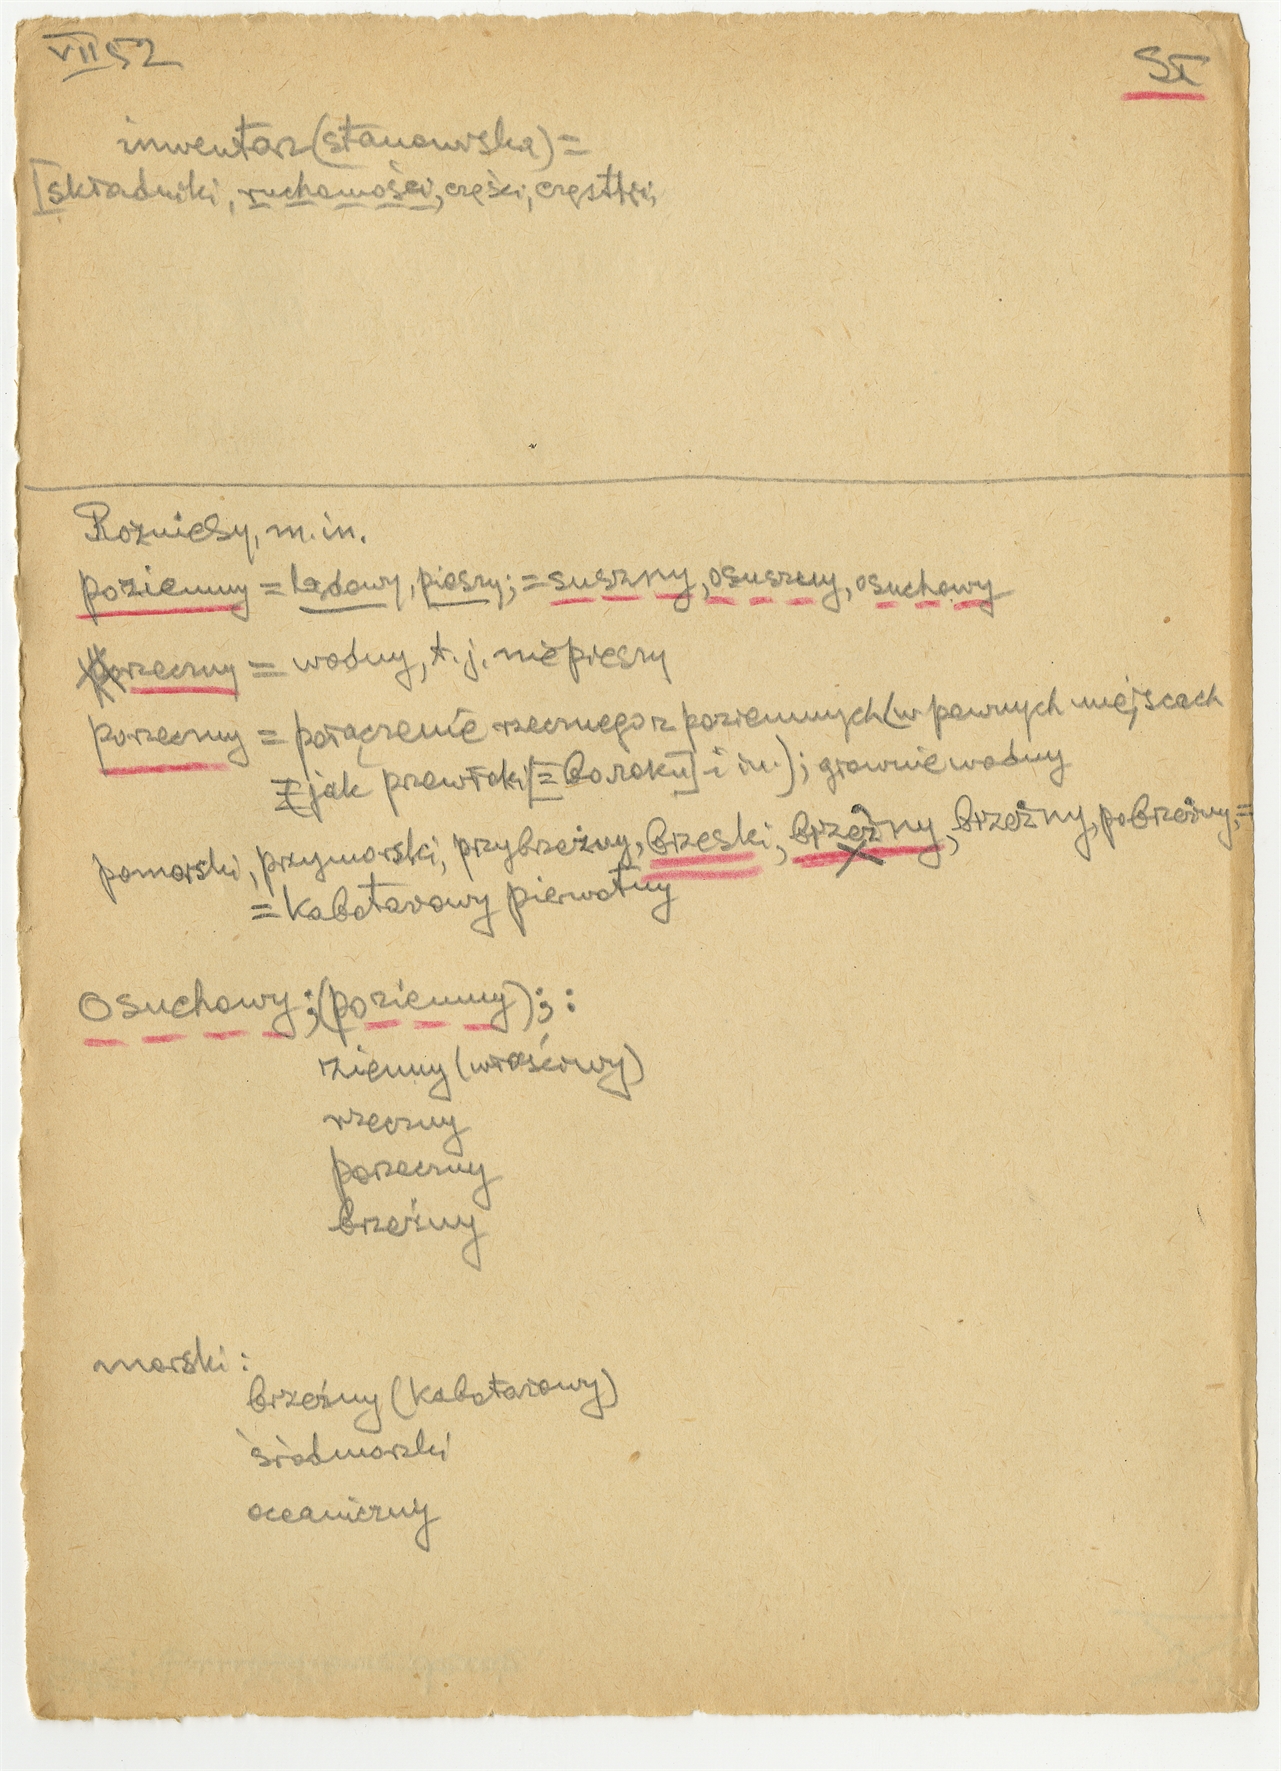 VII 52
SI
inwentarz (stanowiska) =
[składniki, ruchomości, części, cząstki,
Rozniesy, m.in.
poziemny = lądowy, pieszy; = suszny, osuszny, osuchowy
rzeczny = wodny, t.j. niepieszy
porzeczny = połączenie rzecznego z poziemnych (w pewnych miejscach
jak przewłoki [= ] i in.); głównie wodny
pomorski, przymorski, przybrzeżny, brzeski, brzeźny, brzeżny, pobrzeżny, =
= kabotażowy pierwotny
Osuchowy; (poziemny); :
ziemny (właściwy)
rzeczny
porzeczny
brzeżny
morski:
brzeżny (kabotażowy)
śródmorski
oceaniczny